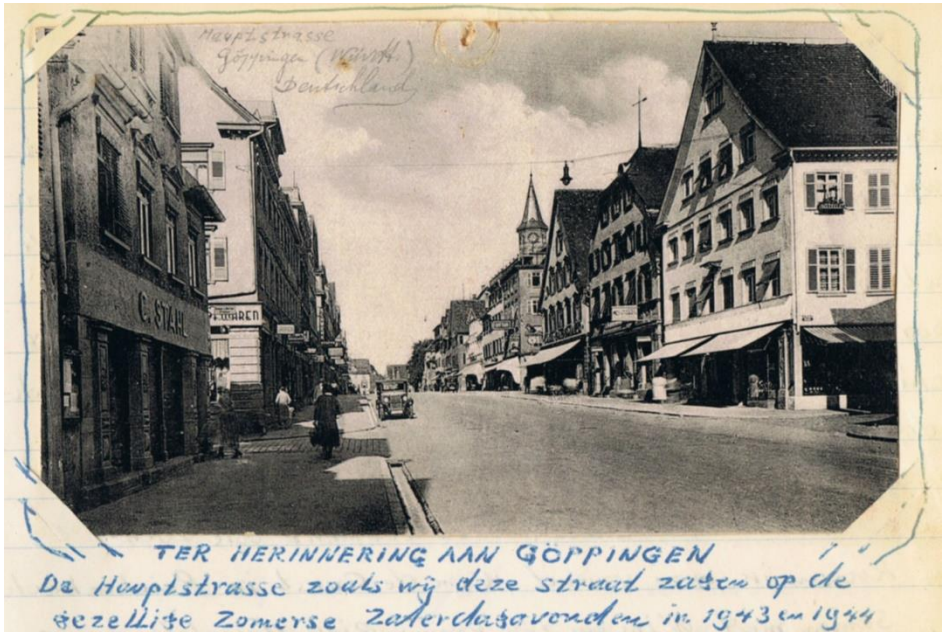 Hauptstrasse
Göppingen (Württ.)
Deutschland
C. STAHL
WAREN
TER HERINNERING AAN GÖPPINGEN
De Hauptstrasse zoals wij deze straat zagen op de
gezellige Zomerse Zaterdagavonden in 1943 en 1944